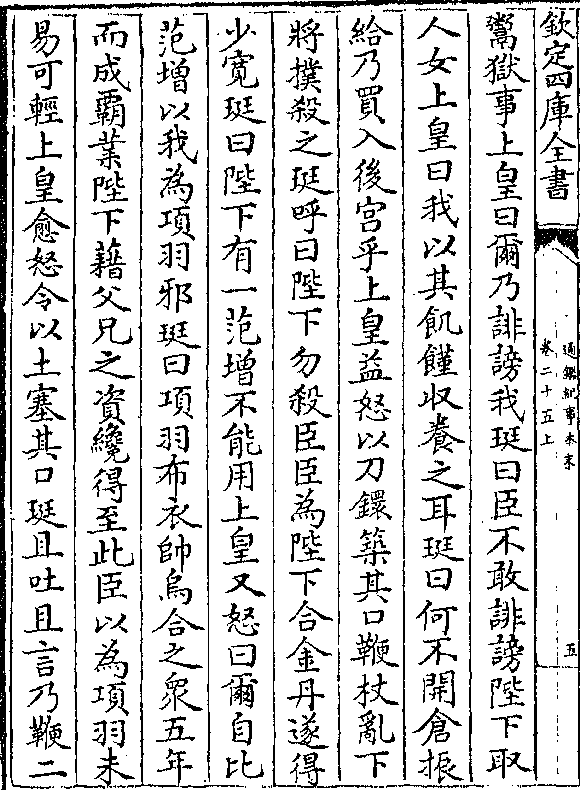 欽定四庫全書
通鑑紀事本末
卷二十五上
五
鬻獄事上皇曰爾乃誹謗我珽曰臣不敢誹謗陛下取
人女上皇曰我以其飢饉收養之耳珽曰何不開倉振
給乃買入後宫乎上皇益怒以刀鐶築其口鞭杖亂下
將撲殺之珽呼曰陛下勿殺臣臣為陛下合金丹遂得
少寛珽曰陛下有一范增不能用上皇又怒曰爾自比
范增以我為項羽邪珽曰項羽布衣帥烏合之衆五年
而成霸業陛下藉父兄之資纔得至此臣以為項羽未
易可輕上皇愈怒令以土塞其口珽且吐且言乃鞭二